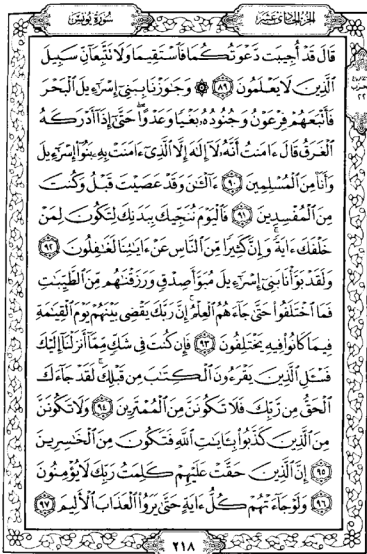 الجزء الحادي عشر سورة يونس
قَالَ قَدْ أُجِيبَت دَّعْوَتُكُمَا فَٱسْتَقِيمَا وَلَا تَتَّبِعَآنِّ سَبِيلَ
ٱلَّذِينَ لَا يَعْلَمُونَ ٨٩ ۞ وَجَٰوَزْنَا بِبَنِىٓ إِسْرَٰٓءِيلَ ٱلْبَحْرَ
فَأَتْبَعَهُمْ فِرْعَوْنُ وَجُنُودُهُۥ بَغْيًا وَعَدْوًا ۖ حَتَّىٰٓ إِذَآ أَدْرَكَهُ
ٱلْغَرَقُ قَالَ ءَامَنتُ أَنَّهُۥ لَآ إِلَٰهَ إِلَّا ٱلَّذِىٓ ءَامَنَتْ بِهِۦ بَنُوٓا۟ إِسْرَٰٓءِيلَ
وَأَنَا۠ مِنَ ٱلْمُسْلِمِينَ ٩٠ ءَآلْـَٰٔنَ وَقَدْ عَصَيْتَ قَبْلُ وَكُنتَ
مِنَ ٱلْمُفْسِدِينَ ٩١ فَٱلْيَوْمَ نُنَجِّيكَ بِبَدَنِكَ لِتَكُونَ لِمَنْ
خَلْفَكَ ءَايَةً ۚ وَإِنَّ كَثِيرًا مِّنَ ٱلنَّاسِ عَنْ ءَايَٰتِنَا لَغَٰفِلُونَ ٩٢
وَلَقَدْ بَوَّأْنَا بَنِىٓ إِسْرَٰٓءِيلَ مُبَوَّأَ صِدْقٍ وَرَزَقْنَٰهُم مِّنَ ٱلطَّيِّبَٰتِ
فَمَا ٱخْتَلَفُوا۟ حَتَّىٰ جَآءَهُمُ ٱلْعِلْمُ ۚ إِنَّ رَبَّكَ يَقْضِى بَيْنَهُمْ يَوْمَ ٱلْقِيَٰمَةِ
فِيمَا كَانُوا۟ فِيهِ يَخْتَلِفُونَ ٩٣ فَإِن كُنتَ فِى شَكٍّ مِّمَّآ أَنزَلْنَآ إِلَيْكَ
فَسْـَٔلِ ٱلَّذِينَ يَقْرَءُونَ ٱلْكِتَٰبَ مِن قَبْلِكَ ۚ لَقَدْ جَآءَكَ
ٱلْحَقُّ مِن رَّبِّكَ فَلَا تَكُونَنَّ مِنَ ٱلْمُمْتَرِينَ ٩٤ وَلَا تَكُونَنَّ
مِنَ ٱلَّذِينَ كَذَّبُوا۟ بِـَٔايَٰتِ ٱللَّهِ فَتَكُونَ مِنَ ٱلْخَٰسِرِينَ
٩٥ إِنَّ ٱلَّذِينَ حَقَّتْ عَلَيْهِمْ كَلِمَتُ رَبِّكَ لَا يُؤْمِنُونَ
٩٦ وَلَوْ جَآءَتْهُمْ كُلُّ ءَايَةٍ حَتَّىٰ يَرَوُا۟ ٱلْعَذَابَ ٱلْأَلِيمَ ٩٧
٢١٨